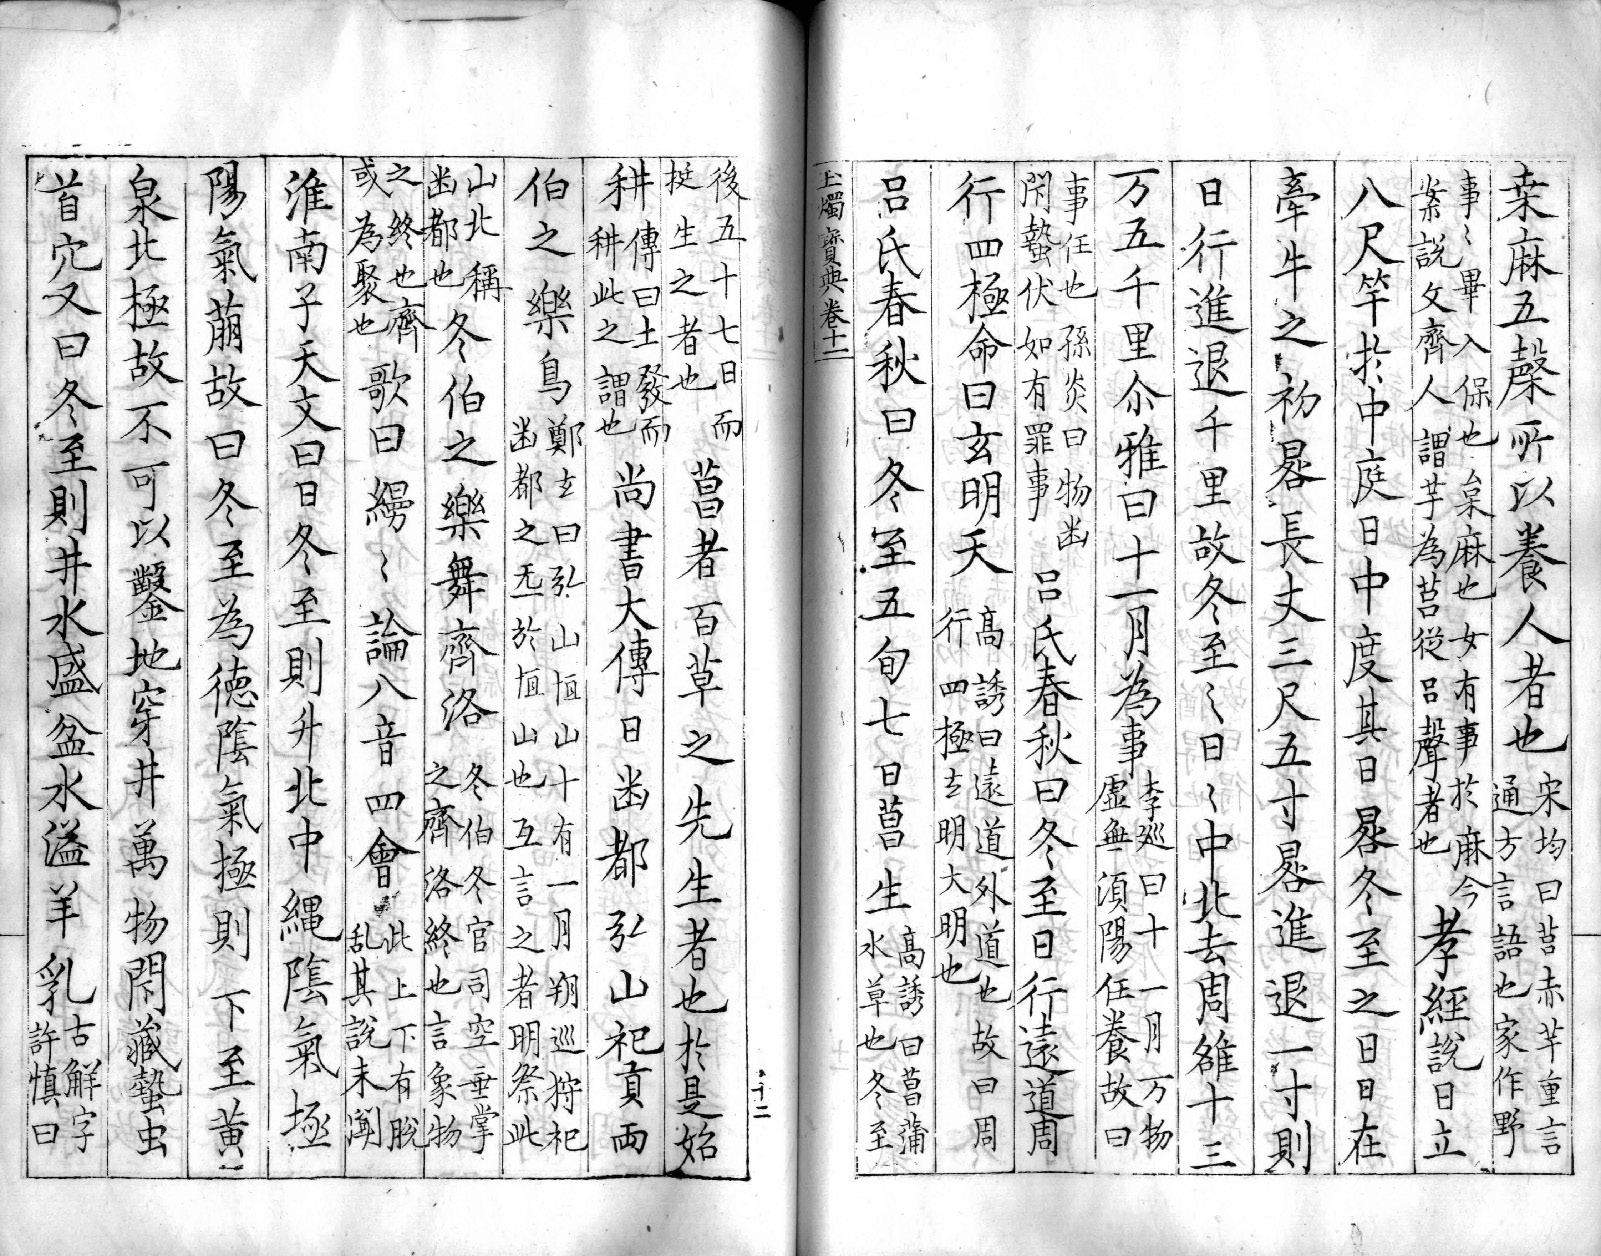 枲麻五聲所以養人者也宋均曰莒赤芋重言通方言語也家作野
事〻畢入保也枲麻也女有事於麻今案說文齊人謂芋為莒從呂聲者也孝經說曰立
八尺竿於中庭日中度其日晷冬至之日日在
牽牛之初晷長丈三尺五寸晷進退一寸則
日行進退千里故冬至〻日〻中北去周雒十三
万五千里尒雅曰十一月為事李巡曰十一月万物虛無須陽任養故曰
事任也孫炎曰物幽閇蟄伏如有罪事呂氏春秋曰冬至日行遠道周
行四極命曰玄明天高誘曰遠道外道也故曰周行四極玄明大明也
呂氏春秋曰冬至五旬七日菖生高誘曰菖蒲水草也冬至
玉燭寶典卷十一
十二
後五十七日而挺生之者也菖者百草之先生者也於是始
耕傳曰土發而耕耕此之謂也尚書大傳曰幽都弘山祀貢両
伯之樂鳥鄭玄曰弘山恒山十有一月朔巡狩祀幽都之无於恒山也互言之者明祭此
山北稱幽都也冬伯之樂舞齊洛冬伯冬官司空垂掌之齊洛終也言象物
之終也齊或為聚也歌曰縵〻論八音四會此上下有脫乱其說未聞
淮南子天文曰日冬至則升北中繩陰氣極
陽氣萠故曰冬至為德陰氣極則下至黃
泉北極故不可以鑿地穿井萬物閇藏蟄虫
首穴又曰冬至則井水盛盆水溢羊乳古解字許慎曰